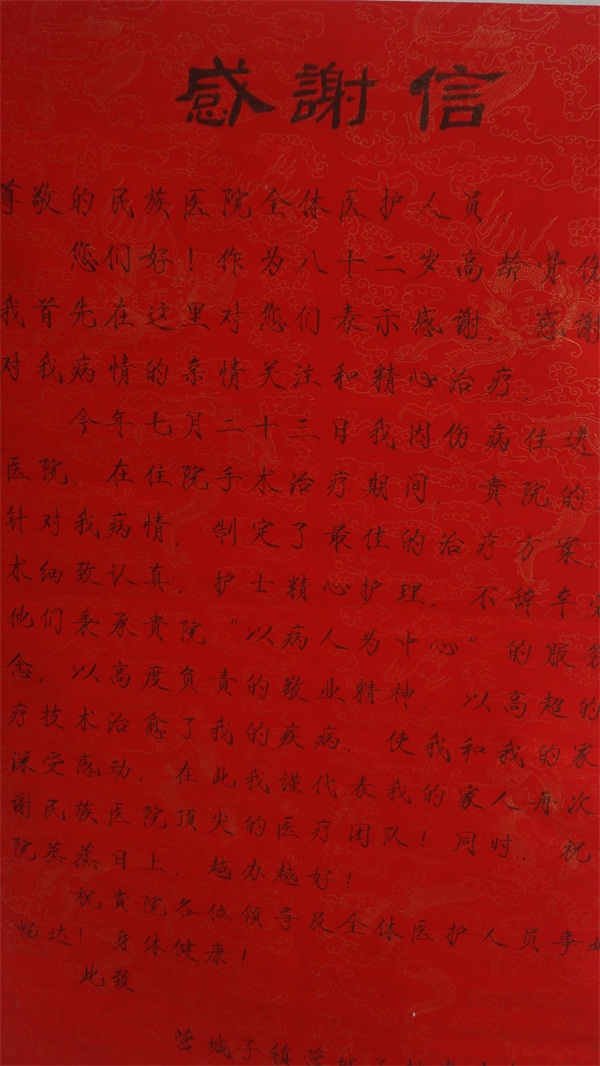 感謝信
尊敬的民族医院全体医护人员:
您们好!作为八十二岁高龄骨伤
我首先在这里对您们表示感谢.感谢
对我病情的亲情关注和精心治疗.
今年七月二十三日我因伤病住进
医院.在住院手术治疗期间.贵院的
针对我病情.制定了最佳的治疗方案.
术细致认真.护士精心护理.不辞辛
他们秉承贵院“以病人为中心”的服务
念.以高度负责的敬业精神.以高超的
疗技术治愈了我的疾病.使我和我的家
深受感动.在此我谨代表我的家人再次
谢民族医院顶尖的医疗团队!同时.祝
院蒸蒸日上.越办越好!
祝贵院各位领导及全体医护人员事业
畅达!身体健康!
此致
营城子镇营城子